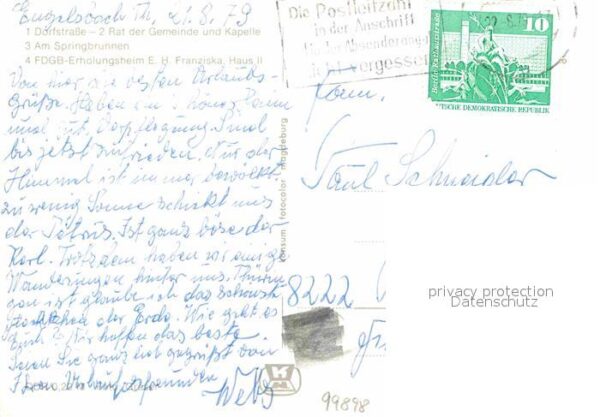 Engelsbach Th, 21.8.79
1 Dorfstraße – 2 Rat der Gemeinde und Kapelle
3 Am Springbrunnen
4 FDGB-Erholungsheim E. H. Franziska, Haus II
Von hier die besten Urlaubs-
grüße. Haben ein schönes
und mit Verpflegung sind
bis jetzt zufrieden. Nur der
Himmel ist immer bewölkt
zu wenig Sonne schickt uns
der Petrus. Ist ganz böse der
Kerl. Trotzdem haben wir einige
Wanderungen hinter uns. Thürin
gen ist glaube ich das schönste
Fleckchen der Erde. Wie geht es
Euch? Wir hoffen das beste.
Seien Sie ganz lieb gegrüßt von
Ihren Urlaubsfreunden
Die Postleitzahl
in der Anschrift
und der Absenderangabe
nicht vergessen
10
DEUTSCHE DEMOKRATISCHE REPUBLIK
Fam.
Paul Schneider
8222
konsum fotocolor magdeburg
privacy protection
Datenschutz
99898